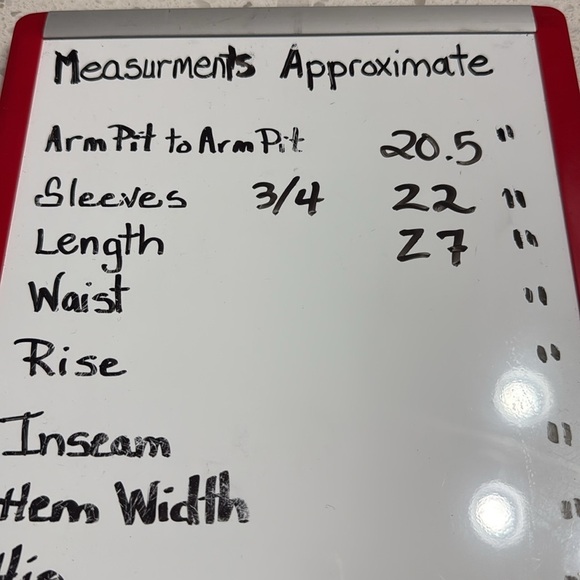 Measurments Approximate
ArmPit to ArmPit 20.5 "
Sleeves 3/4 22 "
Length 27 "
Waist "
Rise "
Inseam "
Hem Width "